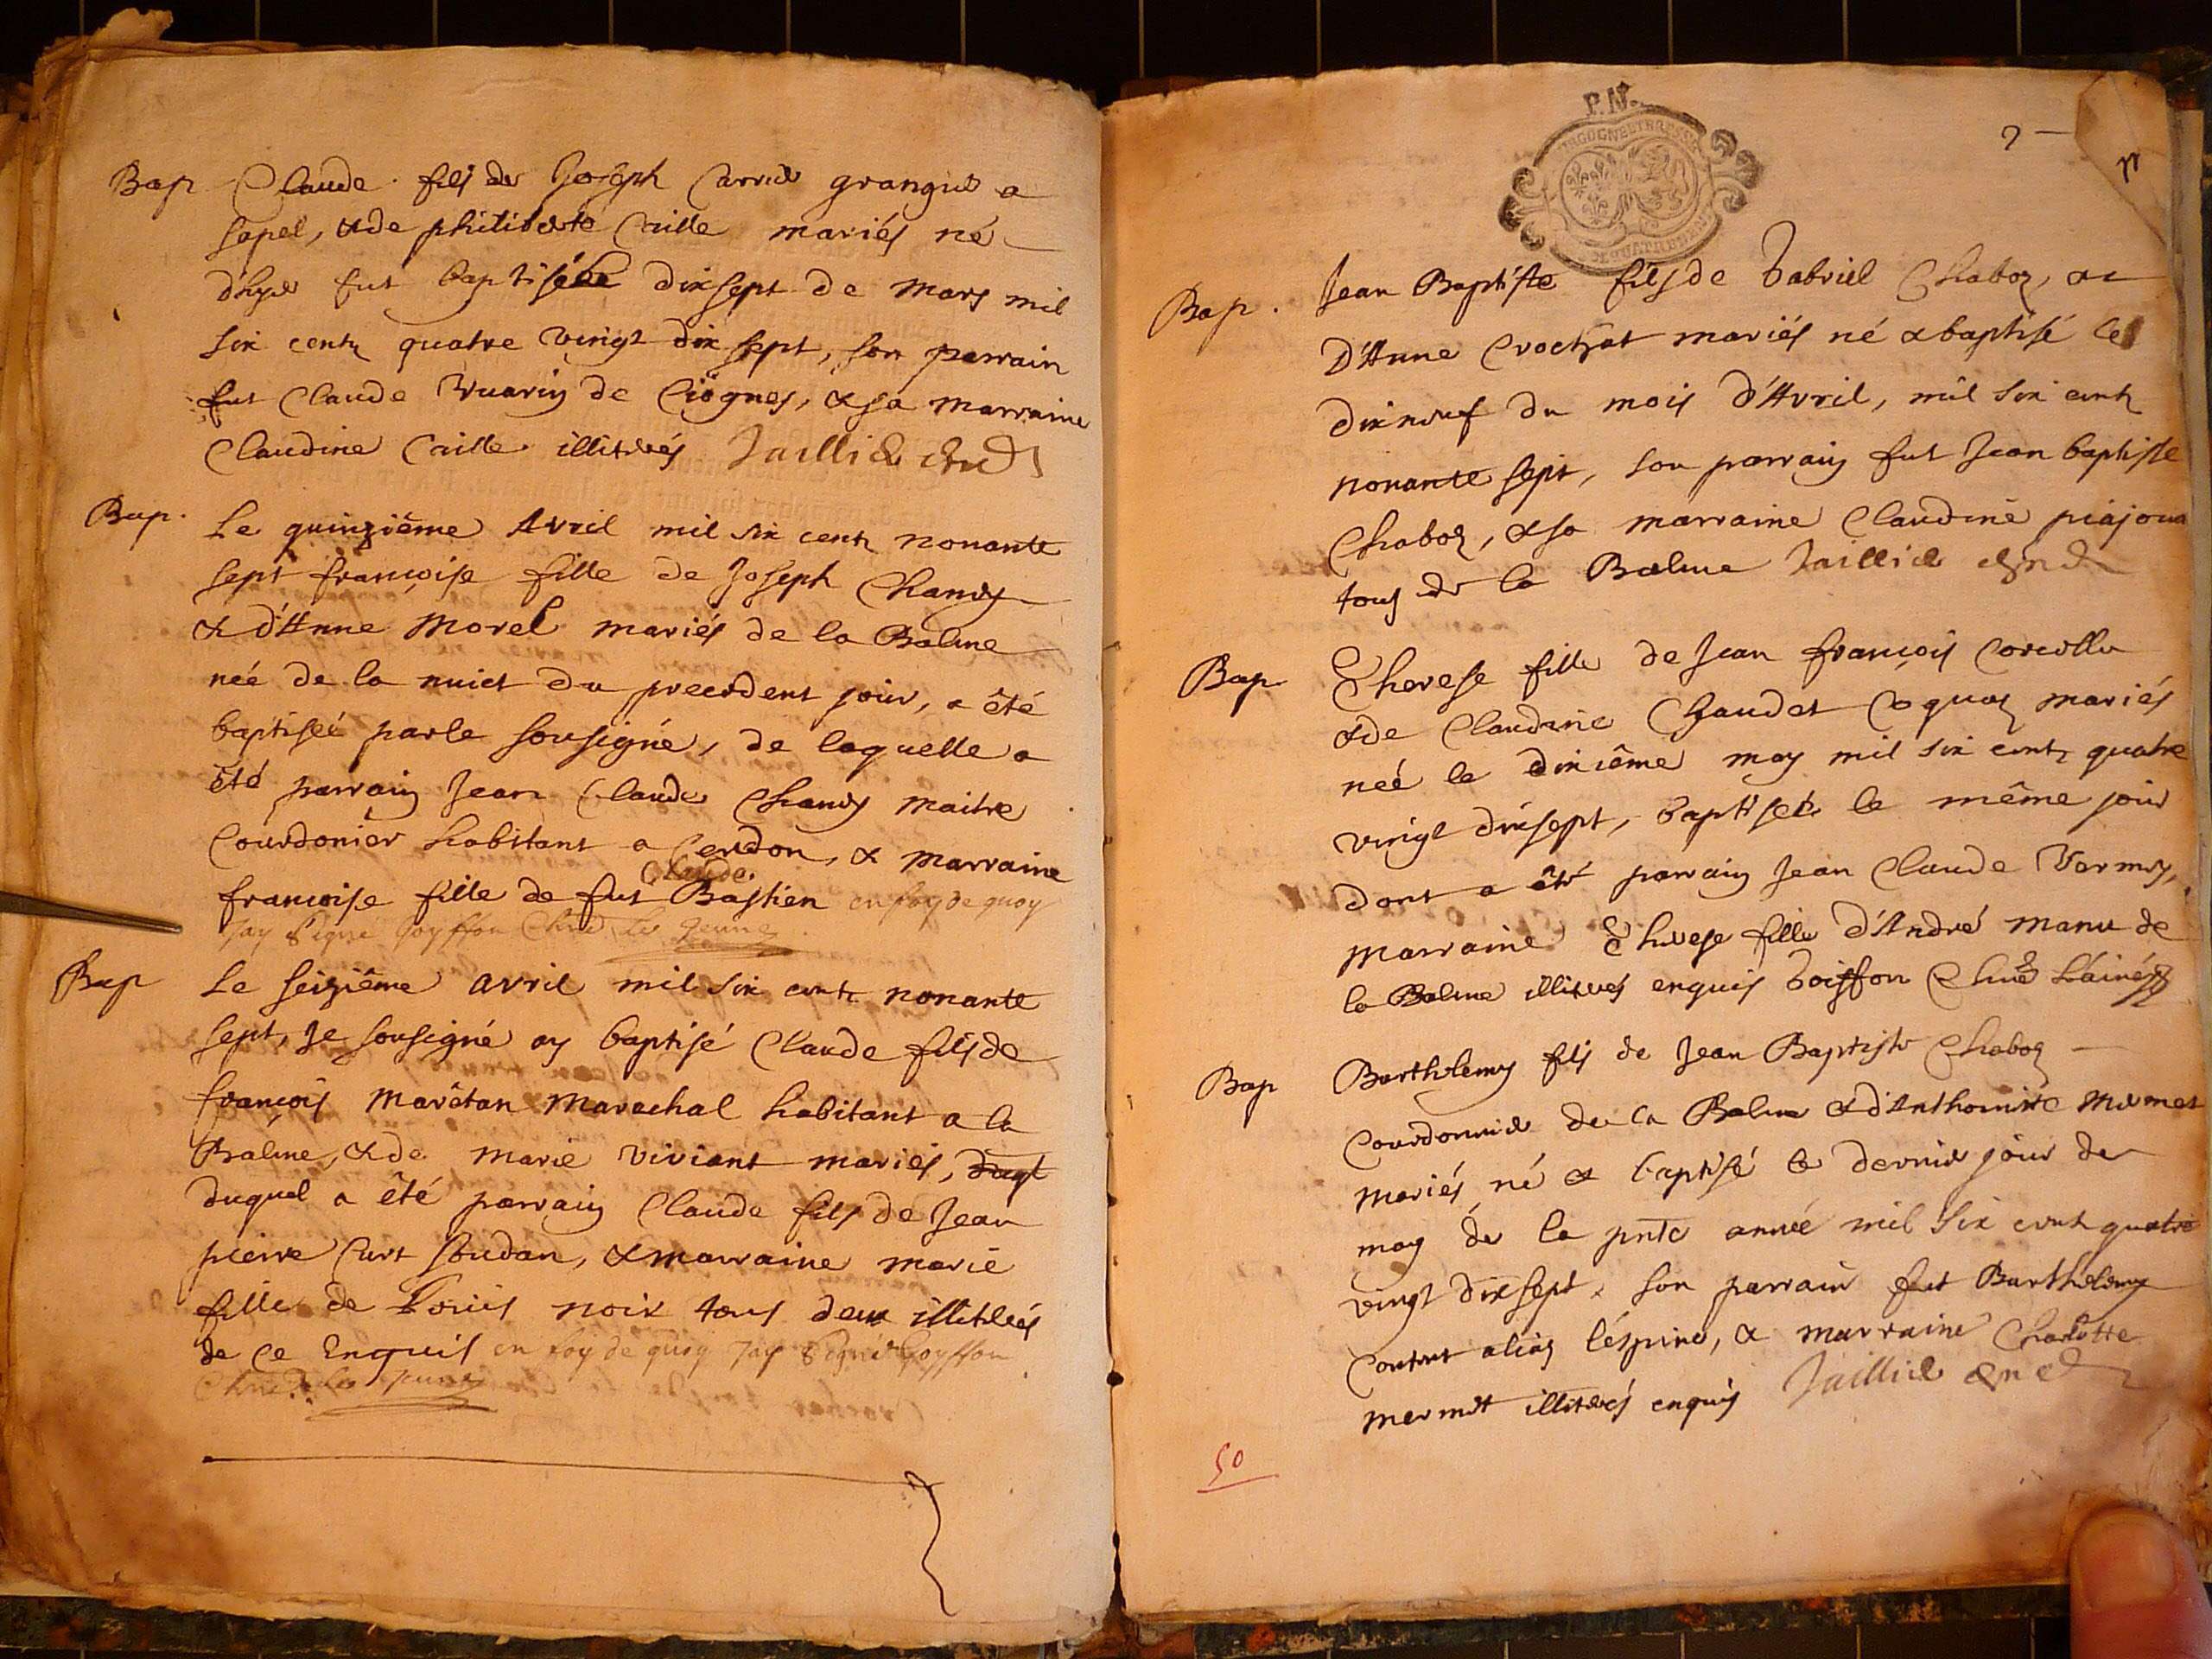 Bap Claude fils de Joseph Carrier granger a
Sapel, & de philiberte Caille mariés né
d'hyer fut baptisé le dixsept de Mars mil
six centz quatre vingt dix sept, son parrain
fut Claude Vuarin de Ciognes, & sa marraine
Claudine Caille illiterés Jaillier
Bap. Le quinziême Avril mil six centz nonante
sept françoise fille de Joseph Chandy
& d'Anne Morel mariés de la Balme
née de la nuict du precedent jour, a êté
baptiseé par le sousigné, de laquelle a
êté parrain Jean Claude Chandy maitre
Courdonier habitant a Cerdon, & marraine
Claude
francoise fille de fut Bastien en foy de quoy
Jay Signe Goyffon Curé Le Jeune
Bap Le seiziême avril mil six centz nonante
sept, Je sousigné ay baptisé Claude fils de
françois Marêtan Marechal habitant a la
Balme, & de Marie Viviant mariés,
duquel a êté parrain Claude fils de Jean
pierre Curt Soudan, & marraine marie
fille de Louis noir tous deux illiterés
de ce Enquis en foy de quoy Jay Signé Goyffon
P.N.
BOURGOGNE ET BRESSE
QUATRE DEN
Bap. Jean Baptiste fils de Gabriel Chaboz, &
D'Anne Crochat mariés né & baptisé le
dix neuf du mois d'Avril, mil six centz
nonante sept, son parrain fut Jean baptiste
Chaboz, & sa marraine Claudine piajoua
tous de la Balme Jaillier
Bap Therese fille de Jean françois Corcellu
& de Claudine Gaudet Coquaz mariés
neé le dixiême may mil six centz quatre
vingt dixsept, baptiseé le même jour
dont a êté parrain Jean Claude Vermey,
marraine Therese fille d'André manu de
la Balme illiteres enquis Goiffon Curé L'ainé
Bap Barthelemy fils de Jean Baptiste Chaboz
Courdonnier de la Balme & d'Anthoinette Mermet
mariés né & baptisé le dernier jour de
may de la pnte année mil six cent quatre
vingt dixsept, son parrain fut Barthelemy
Contet alias l'éspine, & marraine Charlotte
mermet illiterés enquis Jaillier
50